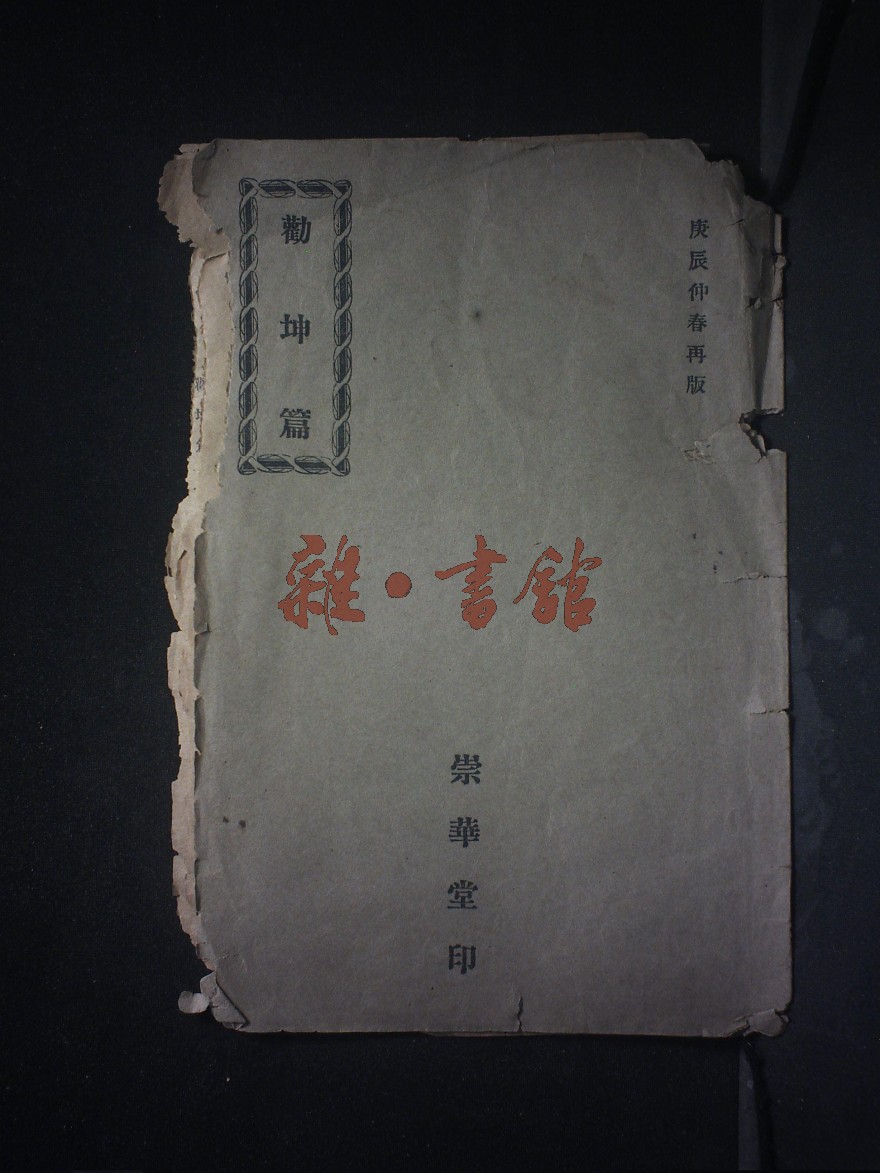 庚辰仲春再版
勸坤篇
崇華堂印
雜·書館